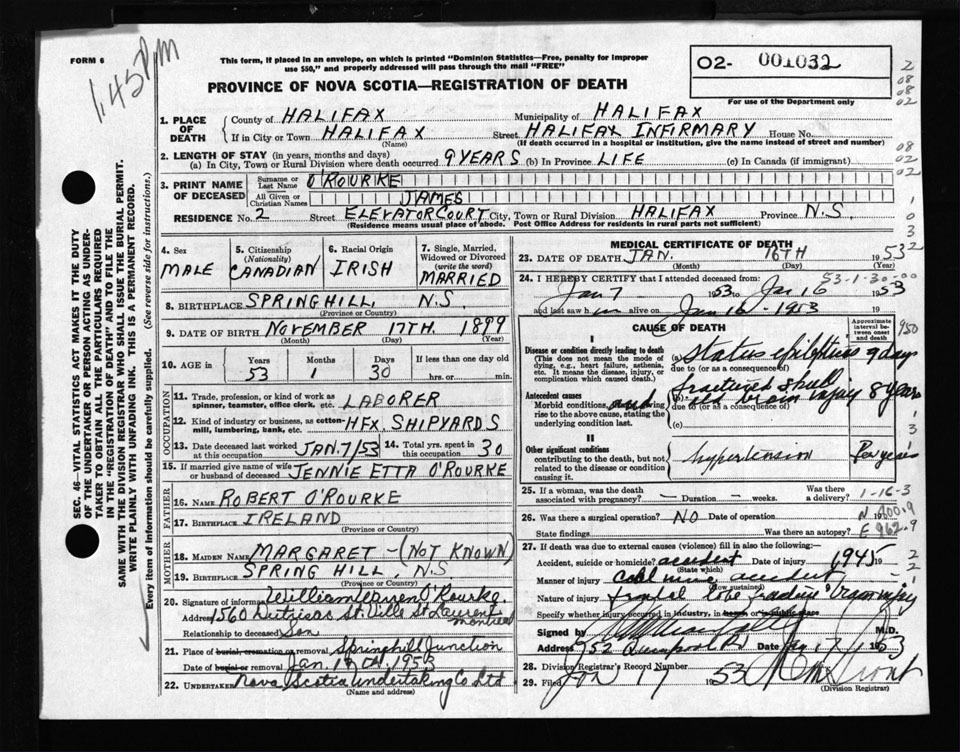 FORM 6
1.45 PM
This form, if placed in an envelope, on which is printed "Dominion Statistics—Free, penalty for improper
use $50," and properly addressed will pass through the mail "FREE"
PROVINCE OF NOVA SCOTIA—REGISTRATION OF DEATH
02- 001032
For use of the Department only
2
08
08
02
1. PLACE OF DEATH
County of HALIFAX Municipality of HALIFAX
If in City or Town HALIFAX Street HALIFAX INFIRMARY House No.
(Name) (If death occurred in a hospital or institution, give the name instead of street and number)
2. LENGTH OF STAY (in years, months and days)
(a) In City, Town or Rural Division where death occurred 9 YEARS (b) In Province LIFE (c) In Canada (if immigrant)
08
02
02
3. PRINT NAME OF DECEASED
Surname or Last Name O'ROURKE
All Given or Christian Names JAMES
RESIDENCE No. 2 Street ELEVATOR COURT City, Town or Rural Division HALIFAX Province N.S.
(Residence means usual place of abode. Post Office Address for residents in rural parts not sufficient)
1
0
3
2
SEC. 46—VITAL STATISTICS ACT MAKES IT THE DUTY
OF THE UNDERTAKER OR PERSON ACTING AS UNDER-
TAKER TO OBTAIN ALL THE PARTICULARS REQUIRED
IN THE "REGISTRATION OF DEATH" AND TO FILE THE
SAME WITH THE DIVISION REGISTRAR WHO SHALL ISSUE THE BURIAL PERMIT.
WRITE PLAINLY WITH UNFADING INK. THIS IS A PERMANENT RECORD.
Every item of information should be carefully supplied. (See reverse side for instructions.)
4. Sex MALE
5. Citizenship (Nationality) CANADIAN
6. Racial Origin IRISH
7. Single, Married, Widowed or Divorced (write the word) MARRIED
8. BIRTHPLACE SPRINGHILL N.S.
(Province or Country)
9. DATE OF BIRTH NOVEMBER 17TH. 1899
(Month) (Day) (Year)
10. AGE in Years 53 Months 1 Days 30 If less than one day old hrs. or min.
OCCUPATION
11. Trade, profession, or kind of work as spinner, teamster, office clerk, etc. LABORER
12. Kind of industry or business, as cotton-mill, lumbering, bank, etc. HFX SHIPYARDS
13. Date deceased last worked at this occupation JAN. 7/53 14. Total yrs. spent in this occupation 30
15. If married give name of wife or husband of deceased JENNIE ETTA O'ROURKE
FATHER
16. NAME ROBERT O'ROURKE
17. BIRTHPLACE IRELAND
(Province or Country)
MOTHER
18. MAIDEN NAME MARGARET - (NOT KNOWN)
19. BIRTHPLACE SPRING HILL, N.S
(Province or Country)
20. Signature of informant William Warren O'Rourke.
Address 1560 St. Ville St Laurent Montreal
Relationship to deceased Son
21. Place of burial, cremation or removal Springhill Junction
Date of burial or removal Jan. 17th. 1953
22. UNDERTAKER Nova Scotia Undertaking Co Ltd
(Name and address)
MEDICAL CERTIFICATE OF DEATH
23. DATE OF DEATH JAN. 16TH 1953
(Month) (Day) (Year)
24. I HEREBY CERTIFY that I attended deceased from 53-1-30-00
Jan 7 1953 to Jan 16 1953
and last saw him alive on Jan 16 - 1953 19
CAUSE OF DEATH
Approximate interval between onset and death
950
I
Disease or condition directly leading to death
This does not mean the mode of dying, e.g., heart failure, asthenia, etc. It means the disease, injury, or complication which caused death.
(a) Status epilepticus 9 days
due to (or as a consequence of)
Antecedent causes
Morbid conditions, any, giving rise to the above cause, stating the underlying condition last.
fractured skull
(b) old brain injury 8 years
due to (or as a consequence of)
(c)
II
Other significant conditions
contributing to the death, but not related to the disease or condition causing it.
hypertension Few years
25. If a woman, was the death associated with pregnancy? — Duration — weeks. Was there a delivery? 1-16-3
26. Was there a surgical operation? NO Date of operation 19
State findings Was there an autopsy?
N 800.9
E 962.9
27. If death was due to external causes (violence) fill in also the following:
Accident, suicide or homicide? accident Date of injury 1945 19
(State which)
Manner of injury coal mine accident
(How sustained)
Nature of injury frontal lobe fracture brain injury
Specify whether injury occurred in industry, in home or in public place
Signed by M.D.
Address 252 Quinpool Rd Date Jan 17 1953
28. Division Registrar's Record Number
29. Filed Jan 17 1953
(Division Registrar)